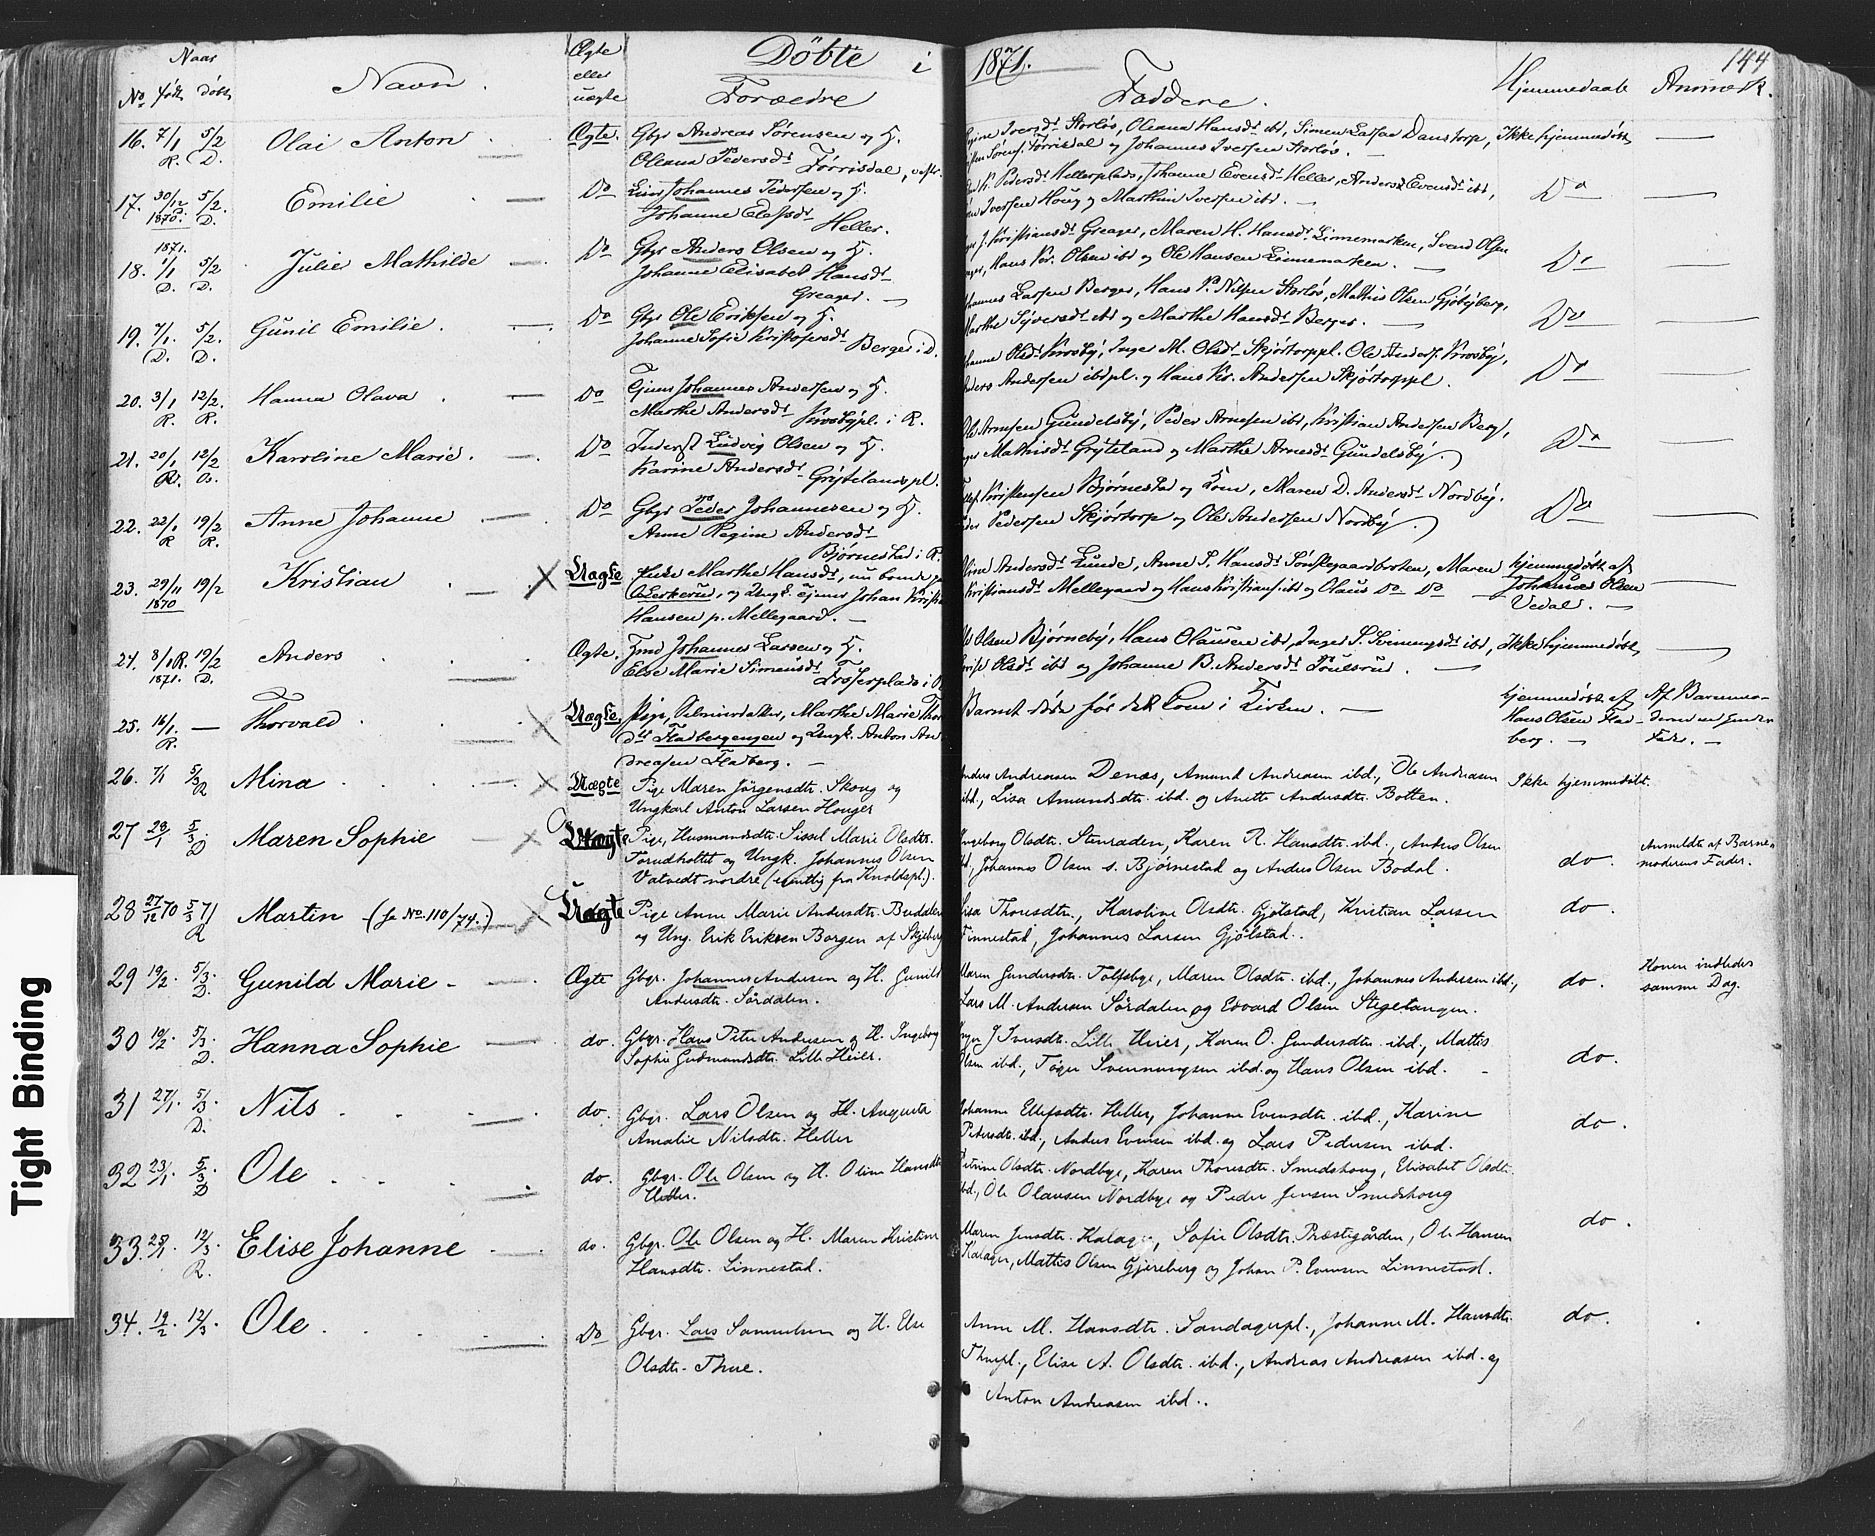 Døbte i 1871. 144
No. Naar født døbt Navn. Ægte eller uægte Forældre Faddere. Hjemmedaab Anmærk.
16. 7/1 R. 5/2 D. Olai Anton Ægte. Gbr Andreas Sørensen og H.
Oleana Pedersdt Tørrisdal, vestr.
Iversdt Storløs, Oleana Hansdt ibd, Simen Larsen Danstorp, Ikke hjemmedøbt
Sørens. Tørrisdal og Johannes Iversen Storløs.
17. 30/12 1870. 5/2. D. Emilie Do Johannes Pedersen og H.
Johanne Heller.
Pedersdt Hellerplads, Johanne Evensdt Heller, Anders Evensdt ibd, Do
Iversen Houg og Iversen ibd.
18. 1871. 1/1 D. 5/2 D. Julie Mathilde Do Gbr Anders Olsen og H.
Johanne Elisabet Hansdt
Greager.
Kristiansdt Greager, Maren H. Hansdt Linnemarken, Svend Olsen Do
Hans Kr. Olsen ibd og Ole Hansen Linnemarken.
19. 7/1. D. 5/2. D. Gunil Emilie. Do Gbr Ole Eriksen og H.
Johanne Sofie Kristofersdt Berger i D.
Larsen Berger, Hans P. Nilsen Storløs, Mathis Olsen Gjøbyberg, Do
Marthe Syversdt ibd og Marthe Hansdt Berger.
20. 3/1 R. 12/2. R. Hanna Olava Do Johannes Andersen og H.
Marthe Andersdt Krosbypl. i R.
Olsdt Krosby, Inger M. Olsdt Skjørtorppl. Ole Anders. Krosby, Do
Andersen ibdpl. og Hans Kr. Andersen Skjørtorppl.
21. 20/1 R. 12/2 Karoline Marie. Do Inderst Ludvig Olsen og H.
Karine Andersdt Grytelandspl.
Ole Arnesen Gundelsby, Peder Arnesen ibd, Kristian Andersen Berg, Do
Mathisdt Gryteland og Marthe Arnesdt Gundelsby.
22. 22/1 R 19/2 R. Anne Johanne Do Gbr Peder Johannesen og H.
Anne Regine Andersdt
Bjørnestad i R.
Kristensen Bjørnestad og Kone, Maren D. Andersdt Nordby. Do
Pedersen Skjørtorp og Ole Andersen Nordby.
23. 29/11 1870 19/2 Kristian Uægte Marthe Hansdt, nu boende
og Ungk. Johan Krist.
Hansen p. Mellegaard.
Andersdt Lunde, Anne S. Hansdt Maren hjemmedøbt af
Kristiansdt Mellegaard og Hans Kristians. ibd og Olaus Do Do Johannes Olsen
Vedal.
24. 8/1 R. 1871. 19/2 D. Anders Ægte. Johannes Larsen og H.
Else Marie Simensdt
Olsen Bjørneby, Hans Olausen ibd, Inger S. Svenungsdt ibd, Ikke hjemmedøbt
Olsdt ibd og Johanne B. Andersdt Poulsrud.
25. 16/1 R. — Thorvald Uægte Pige, Marthe Marie Thor
dtr Fladbergengen og Ungk. Anton An
dreasen Fladberg.
Barnet døde før det kom i Kirken. hjemmedøbt af
Hans Olsen Flad-
berg.
Af Barnemo-
deren
Fader.
26. 7/1 5/3 R Mina Uægte Pige Maren Jørgensdtr. Skoug og
Ungkarl Anton Larsen Houger
Anders Andreasen Denæs, Amund Andreasen ibd., Ole Andreasen Ikke hjemmedøbt.
ibd., Lisa Amundsdtr. ibd. og Anette Andersdtr. Botten.
27 29/1 5/3 D Maren Sophie Uægte Pige, Husmandsdtr. Sissel Marie Olsdtr.
Torudholtet og Ungk. Johannes Olsen
Vatvedt nordre (egentlig fra Knoldspl.).
Ingeborg Olsdtr. Stenraden, Karen R. Hansdtr. ibd., Anders Olsen do. Anmeldt af Barne-
Johannes Olsen s. Bjørnestad og Anders Olsen Bodal. moderens Fader.
28 27/12 70 5/3 71 R Martin (se No. 110/74.) Uægte Pige Anne Marie Andersdtr. Buddalen
og Ung. Erik Eriksen Borgen af Skjeberg
Lisa Thoresdtr., Karoline Olsdtr. Gjølstad, Kristian Larsen do.
Finnestad, Johannes Larsen Gjølstad.
29 19/2. 5/3. D. Gunild Marie Ægte Gbgr. Johannes Andersen og H. Gunild
Andersdtr. Sørdalen.
Maren Gundersdtr. Tolfsbye, Maren Olsdtr. ibd., Johannes Andersen ibd., do. Konen indledes
Lars M. Andersen Sørdalen og Edvard Olsen Stegetangen. samme Dag.
30 10/2. 5/3. D. Hanna Sophie do. Gbgr. Hans Peter Andersen og H. Ingeborg
Sophie Gudmundsdtr. Lille Heier.
Inger J Iversdtr. Lille Heier, Karen O. Gundersdtr. ibd., Mattis do.
Olsen ibd., Tøger Svennungsen ibd. og Hans Olsen ibd.
31 27/1. 5/3. D. Nils do. Gbgr. Lars Olsen og H. Augusta
Amalie Nilsdtr. Heller
Johanne Ellefsdtr. Heller, Johanne Evensdtr. ibd., Karine do.
Pedersdtr. ibd., Anders Evensen ibd. og Lars Pedersen ibd.
32 23/1. 5/3 D Ole do. Gbgr. Ole Olsen og H. Oline Hansdtr
Heller.
Petrine Olsdtr. Nordbye, Karen Thoresdtr. Smedshoug, Elisabet Olsdtr.
ibd., Ole Olausen Nordbye og Peder Jensen Smedshoug do.
33. 25/1. 12/3. R. Elise Johanne do. Gbgr. Ole Olsen og H. Maren Kristine
Hansdtr. Linnestad.
Maren Jensdtr. Kalager, Sofie Olsdtr. Præstegården, Ole Hansen
Kalager, Mattis Olsen Gjereberg og Johan P. Evensen Linnestad.
34. 19/2. 12/3 Ole Do Gbgr. Lars Samuelsen og H. Else
Olsdtr. Thue.
Anne M. Hansdtr. Sandagerpl., Johanne M. Hansdtr. do.
Thuepl., Elise A. Olsdtr. ibd., Andreas Andreasen ibd. og
Anton Andreasen ibd.
Tight Binding